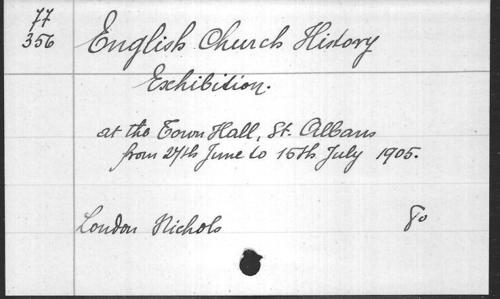 77
356
English Church History
Exhibition.
at the Town Hall, St. Albans
from 27th June to 15th July 1905.
London Nichols 8o